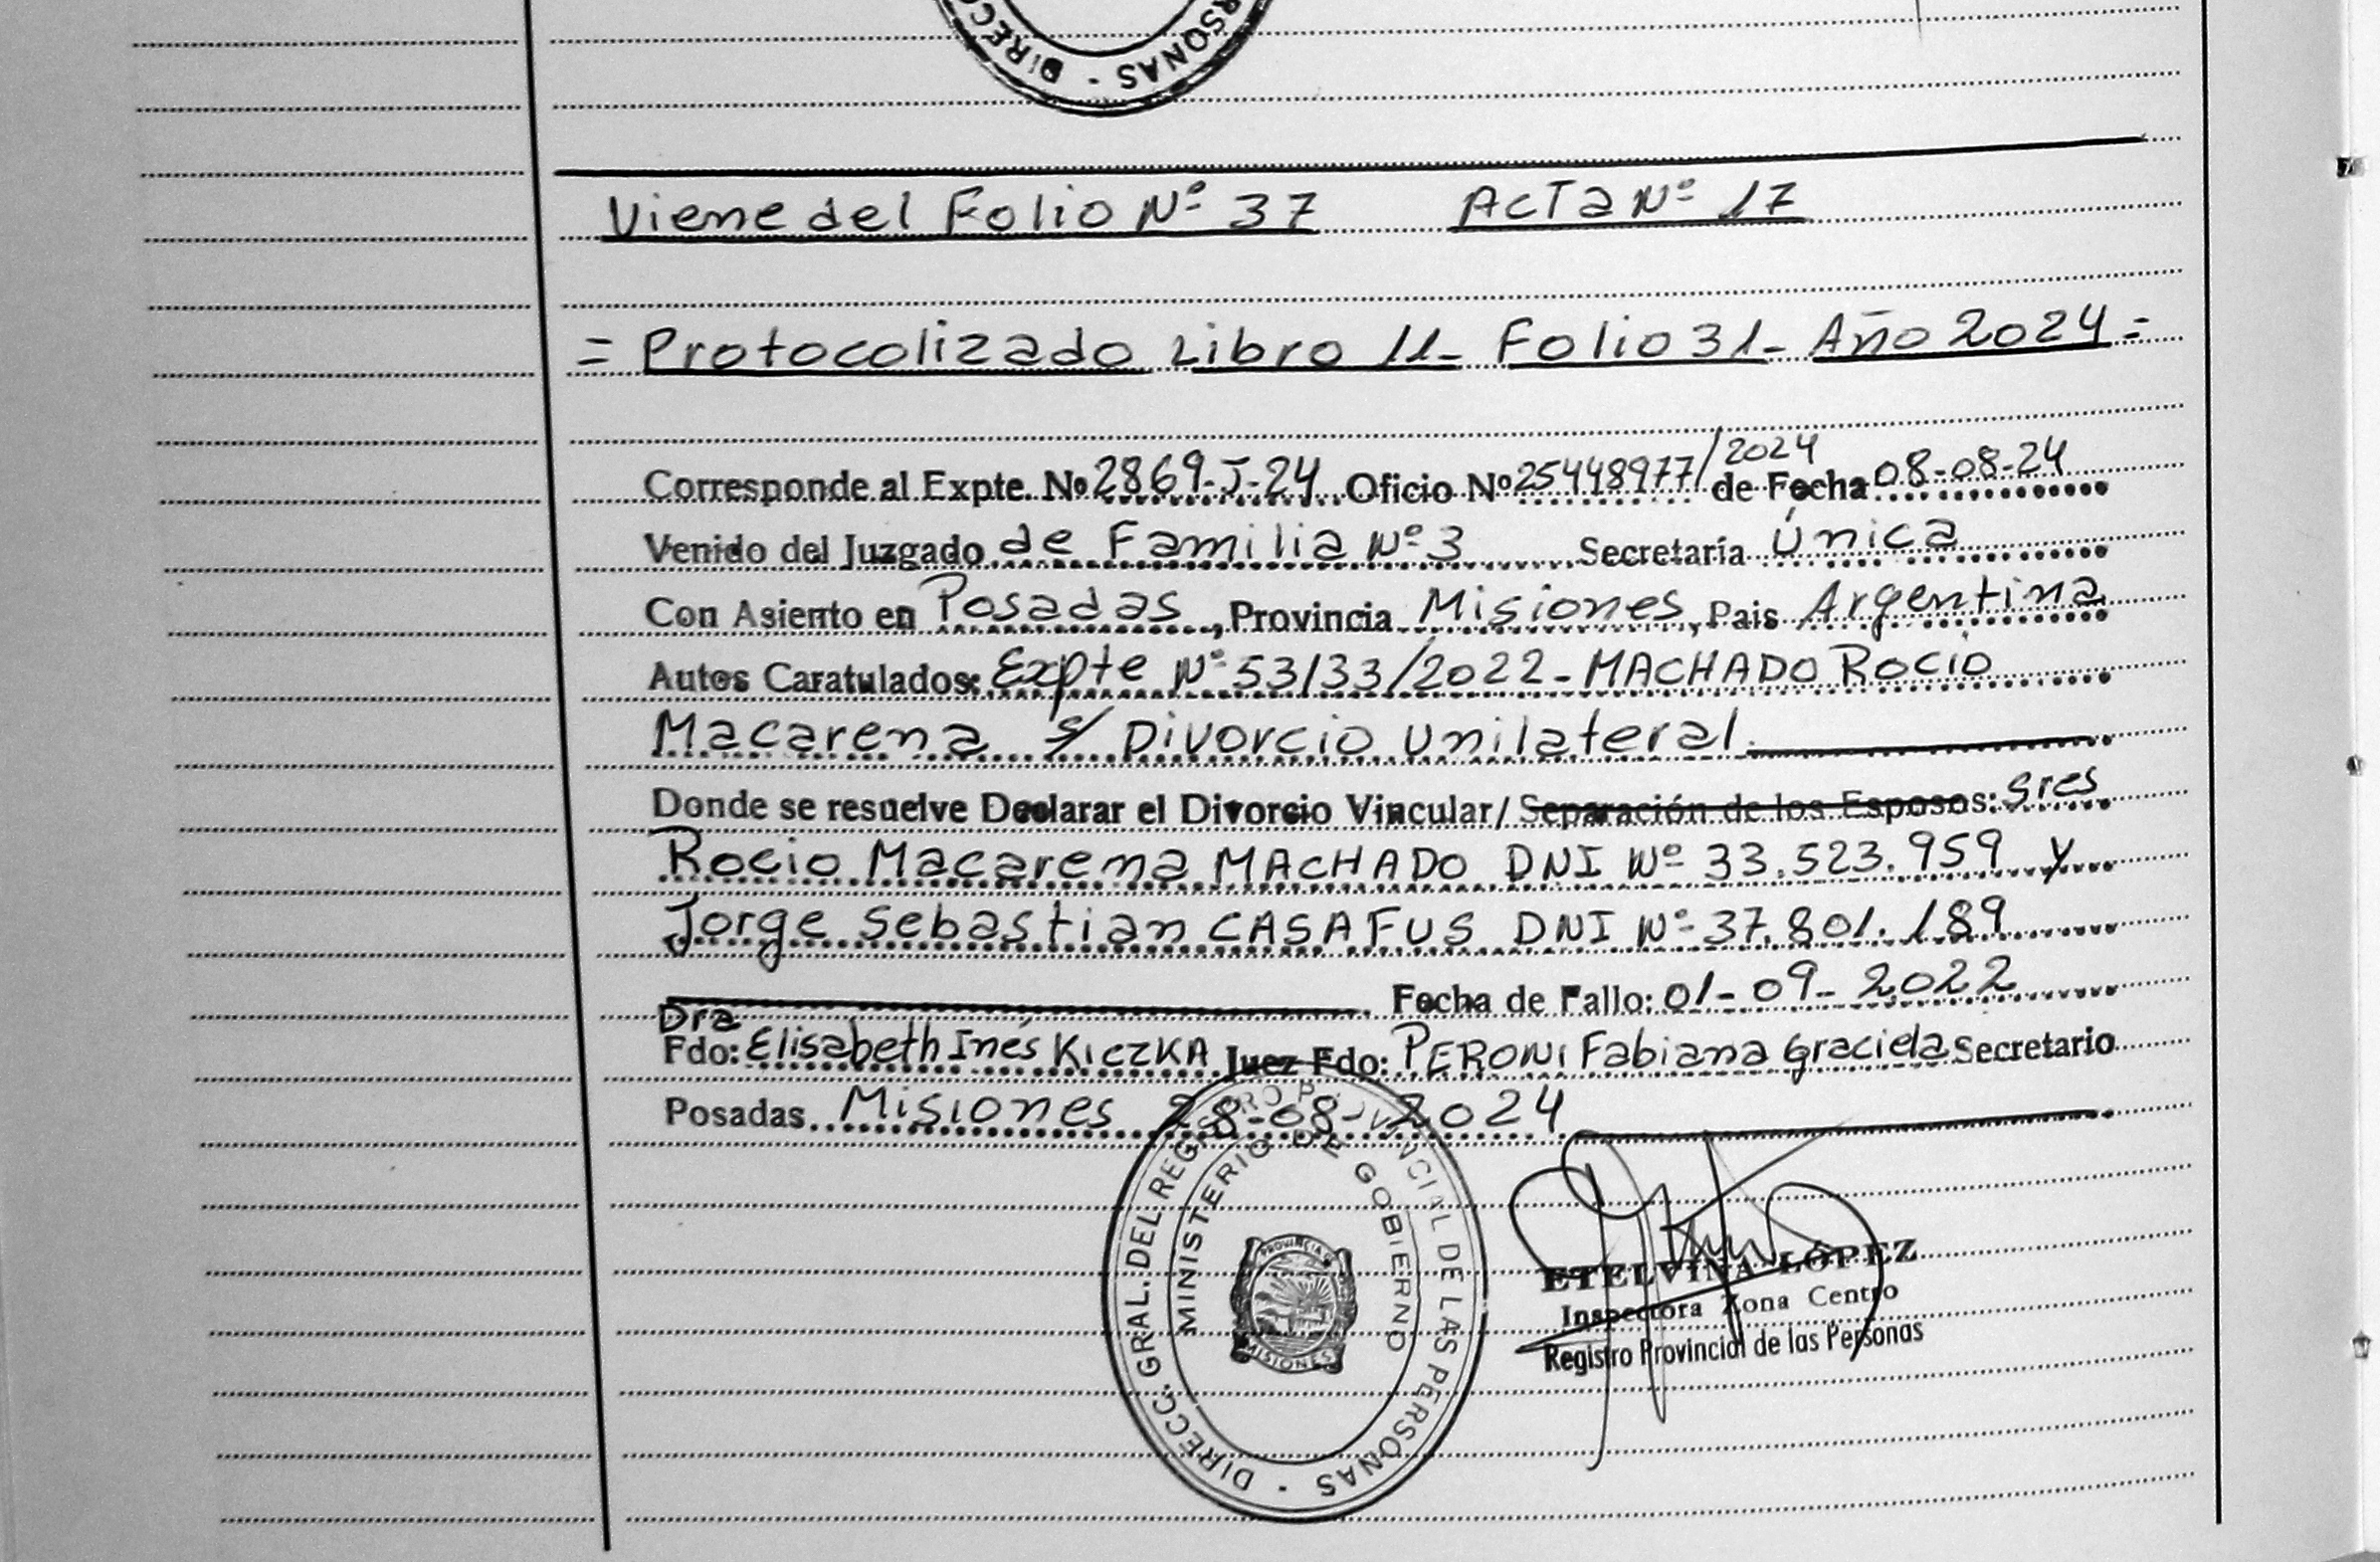 DIRECC
RSONAS -
Viene del Folio Nº 37 ACTA Nº 17
= Protocolizado Libro 11- Folio 31- Año 2024 =
Corresponde al Expte. Nº 2869-J-24 Oficio Nº 25448977/2024 de Fecha 08-08-24
Venido del Juzgado de Familia Nº 3 Secretaría Única
Con Asiento en Posadas, Provincia Misiones, Pais Argentina
Autos Caratulados: Expte Nº 53133/2022- MACHADO Rocio
Macarena s/ Divorcio Unilateral.
Donde se resuelve Declarar el Divorcio Vincular/ Separación de los Esposos: Sres
Rocio Macarena MACHADO DNI Nº 33.523.959 y
Jorge Sebastian CASAFUS DNI Nº 37.801.189
Fecha de Fallo: 01-09-2022
Dra
Fdo: Elisabeth Inés KICZKA Juez Fdo: PERONI Fabiana Graciela Secretario
Posadas Misiones 28-08-2024
DIRECC. GRAL. DEL REGISTRO PROVINCIAL DE LAS PERSONAS -
MINISTERIO DE GOBIERNO
PROVINCIA DE
MISIONES
ETELVINA LÓPEZ
Inspectora Zona Centro
Registro Provincial de las Personas